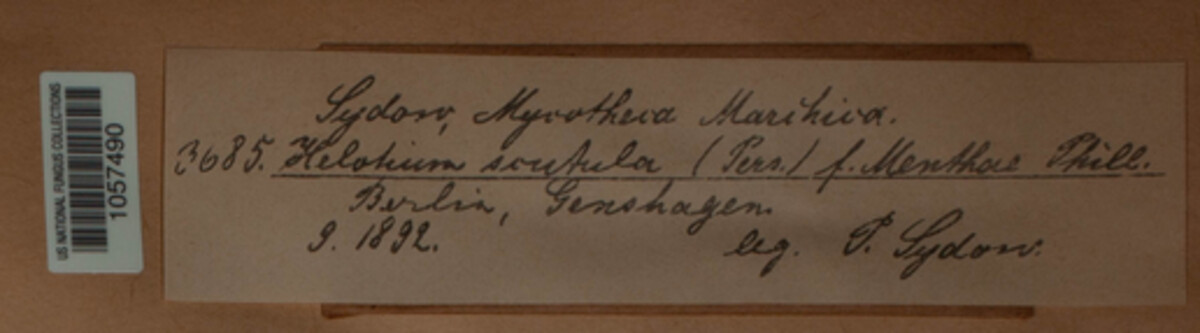 US NATIONAL FUNGUS COLLECTIONS
1057490
Sydow, Mycotheca Marchica.
3685. Helotium scutula (Pers.) f. Menthae Phill.
Berlin, Genshagen.
9. 1892. leg. P. Sydow.